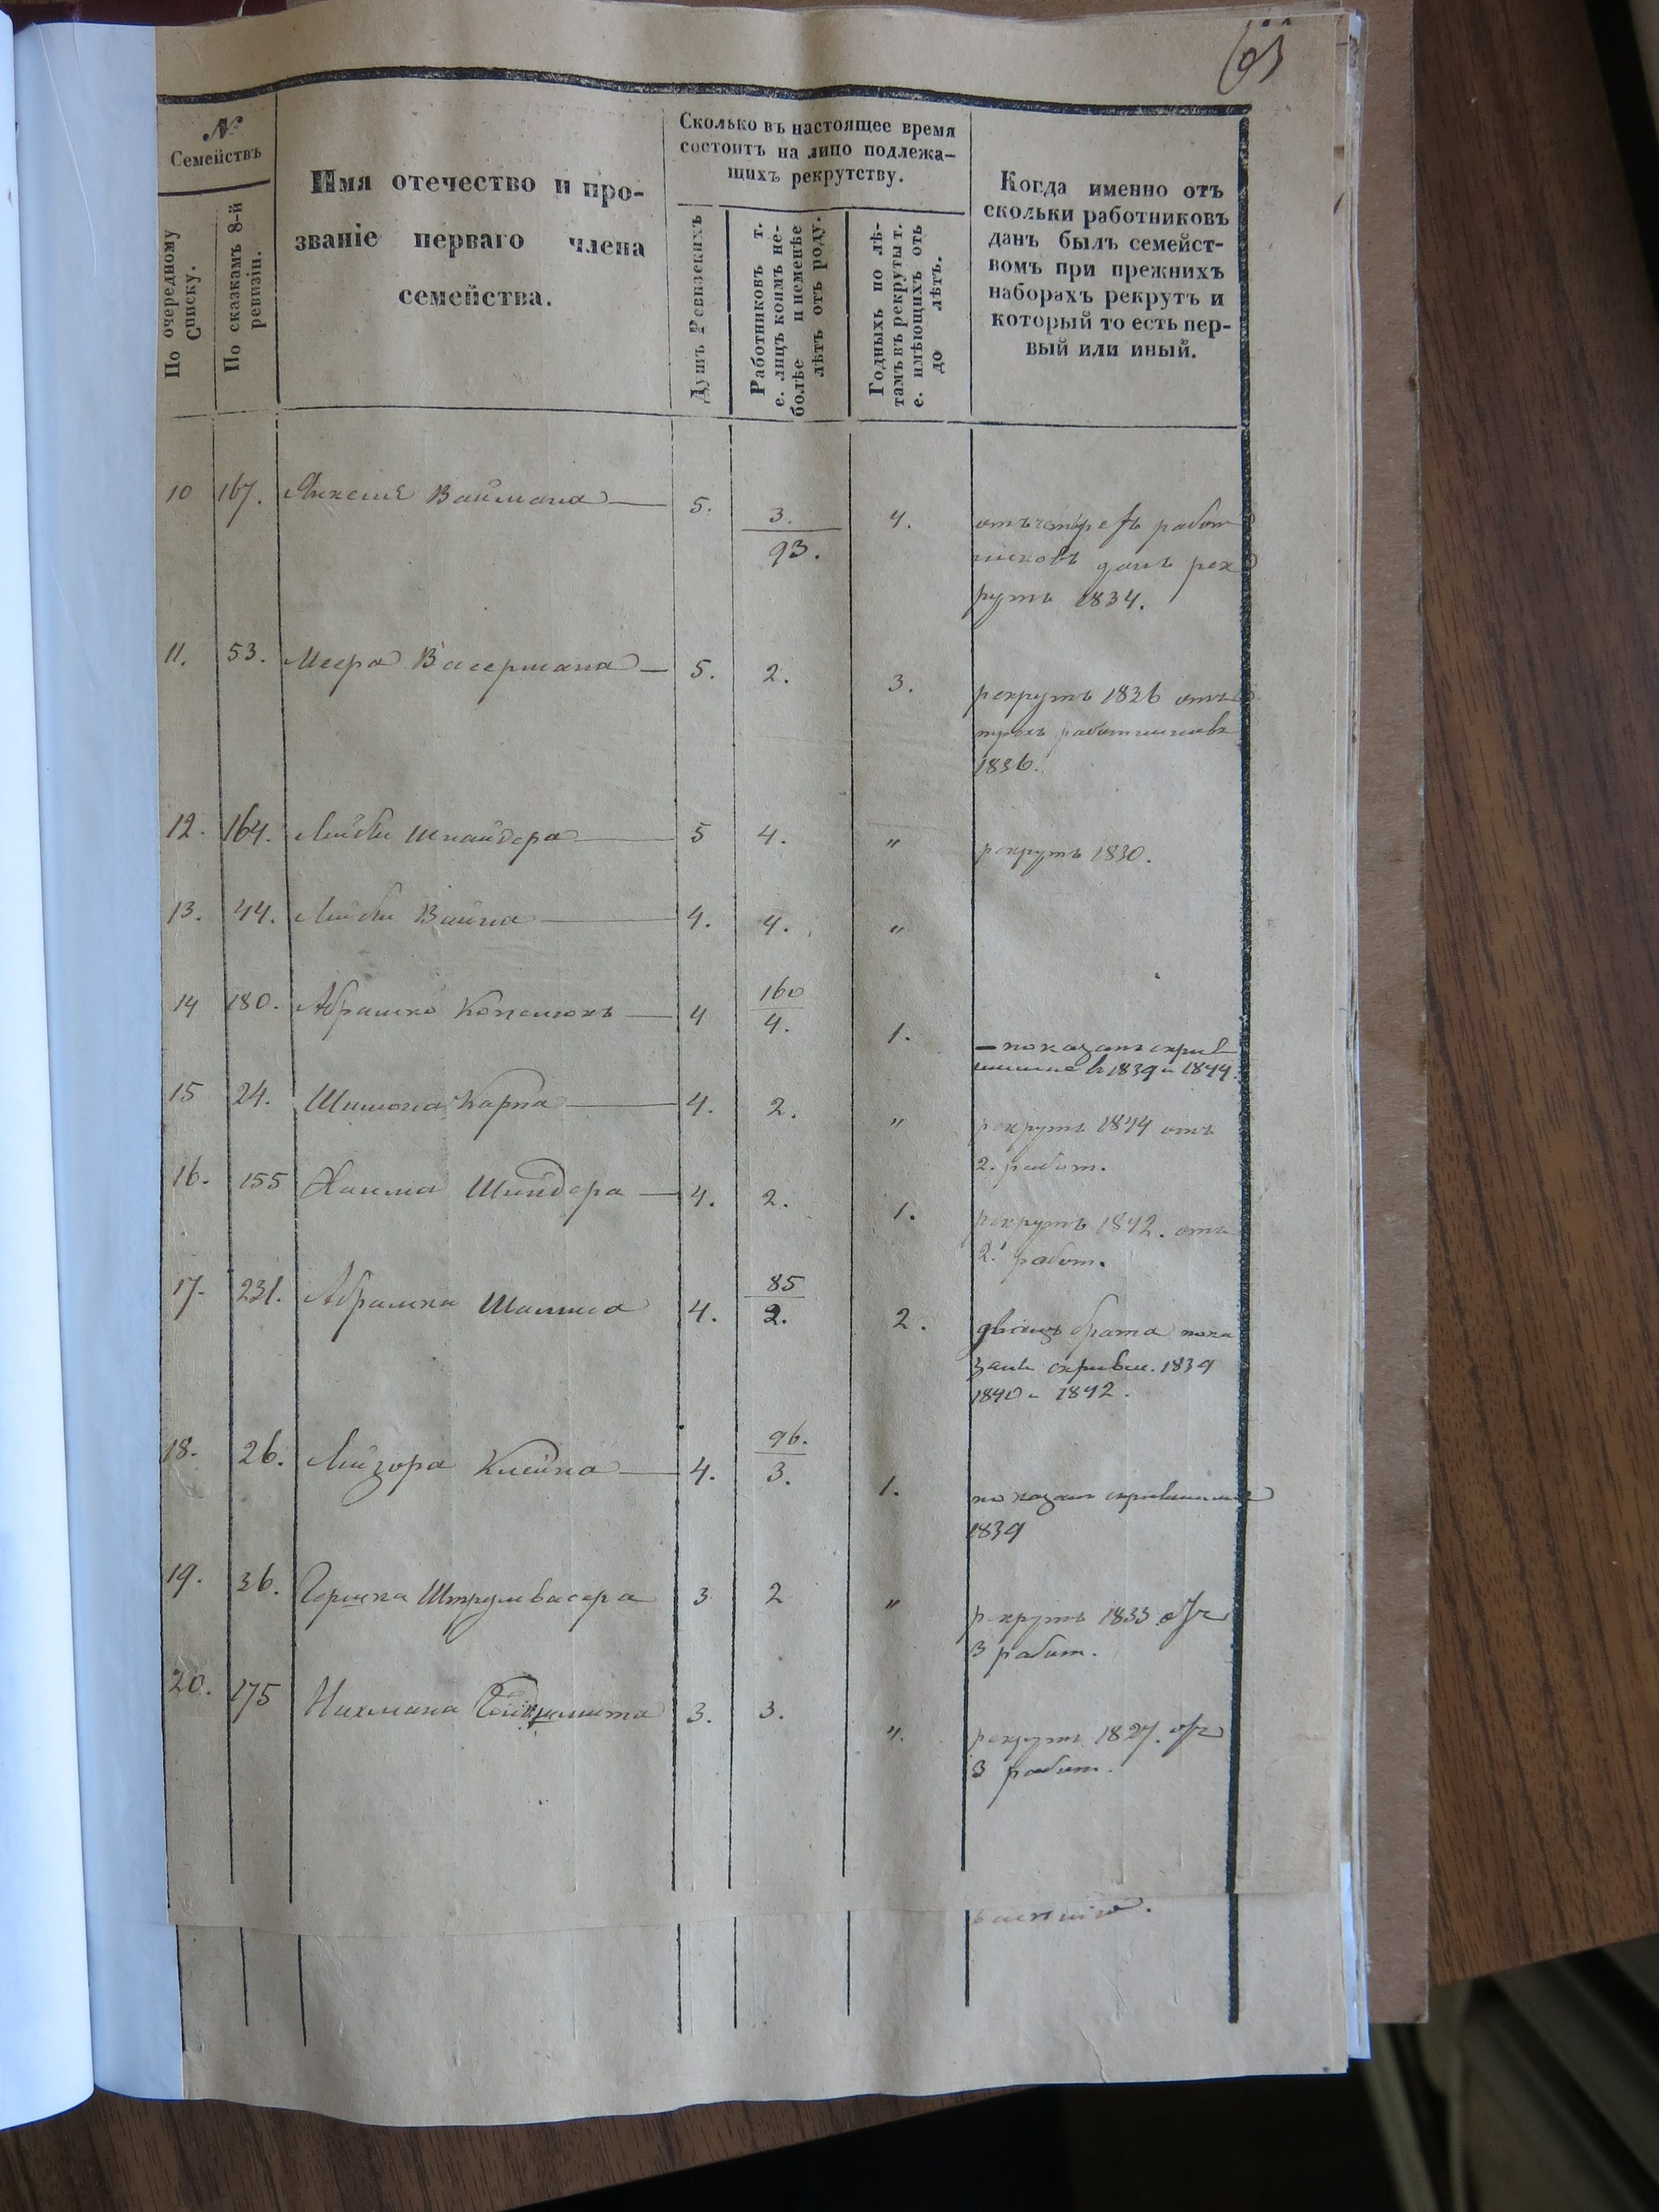 №
Семействъ
По очередному Списку.
По сказкамъ 8-й ревизіи.
Имя отечество и про-
званіе перваго члена
семейства.
Сколько въ настоящее время
состоитъ на лицо подлежа-
щихъ рекрутству.
Душъ Ревизскихъ
Работниковъ т.
е. лицъ коимъ не-
болѣе и неменѣе
лѣтъ отъ роду.
Годныхъ по лѣ-
тамъ въ рекруты т.
е. имѣющихъ отъ
до лѣтъ.
Когда именно отъ
скольки работниковъ
данъ былъ семейст-
вомъ при прежнихъ
наборахъ рекрутъ и
который то есть пер-
вый или иный.
10 167. Янкеля Ваймана 5. 3. 4.
93.
отъ четырехъ работ
никовъ данъ рек
рутъ 1834.
11. 53. Меера Васермана 5. 2. 3.
рекрутъ 1836 отъ
трехъ работниковъ
1836.
12. 164. Лейбы Шнайдера 5 4. " рекрутъ 1830.
13. 44. Лейбы Вайна 4. 4. "
160
14 180. Абрашко 4 4. 1.
показанъ скрыв
шимся в 1839 и 1844.
15 24. Шимона Карпа 4. 2. "
рекрутъ 1844 отъ
2. работ.
16. 155 Хаима Шнейдера 4. 2. 1.
рекрутъ 1842. отъ
2. работ.
85
17. 231. Абрамка 4. 2. 2.
брата пока
заны скрывш. 1839
1840 и 1842.
96.
18. 26. Лейзора Клейна 4. 3. 1.
показанъ скрывшимся
1839
19. 36. Гершка Штрумвасера 3 2 "
рекрутъ 1833 отъ
3 работ.
20. 175 Нахмана 3. 3. ".
рекрутъ 1827. отъ
3 работ.